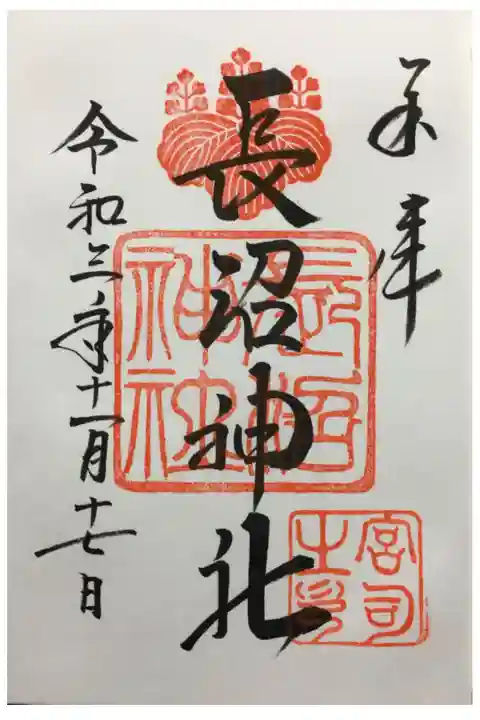 奉拝
長沼神社
長沼神社
宮司之印
令和三年十一月十七日